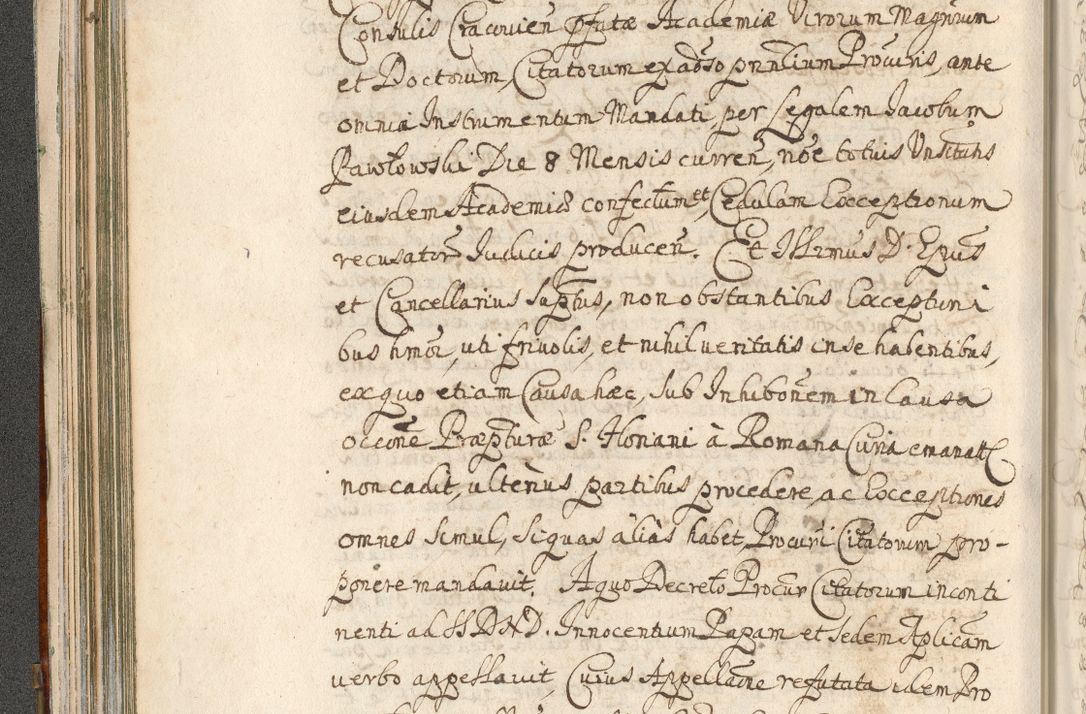 Consulis Cracovien pfatæ Academiæ Virorum Magrum
et Doctorum, Citatorum ex adso pnnlium Procuris, ante
omnia Instrumentum Mandati, per Legalem Iacobum
Pawłowski Die 8 Mensis curren, noe totius Unsitatis
eiusdem Academiæ confectum et Cedulam Exceptionum
recusator Iudicis producen. Et Illrmus D. Epus
et Cancellarius saptus, non obstantibus Exceptioni
bus hmoi, uti frivolis, et nihil veritatis in se habentibus,
ex quo etiam Causa hæc, sub Inhibonem in Causa
occone Præpturæ S. Floriani à Romana Curia emanatt
non cadit, ulterius partibus procedere, ac Exceptiones
omnes simul, si quas alias habet, Procuri Citatorum pro-
ponere mandavit. A quo Decreto Procur Citatorum inconti
nenti ad SSDND. Innocentium Papam et sedem Aplicam
verbo appellavit, Cuius Appellaone refutata idem Pro